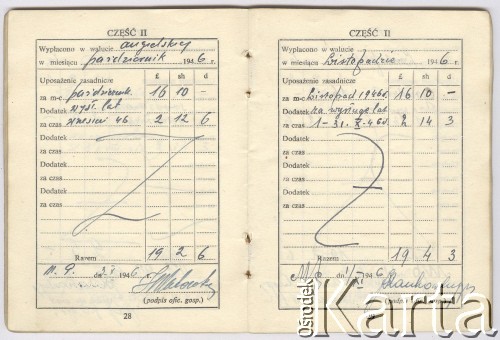 CZĘŚĆ II
Wypłacono w walucie angielskiej
w miesiącu październik 1946 r.
Uposażenie zasadnicze £ sh d
za m-c październik 16 10 —
Dodatek wysł. lat
za czas wrzesień 46 2 12 6
Dodatek
za czas
Dodatek
za czas
Dodatek
za czas
Razem 19 2 6
M. P. dn. 1946
(podpis ofic. gosp.)
28
CZĘŚĆ II
Wypłacono w walucie
w miesiącu Listopadzie 1946 r.
Uposażenie zasadnicze £ sh d
za m-c Listopad 1946r. 16 10 —
Dodatek za wysługę lat
za czas 1-31. X. 46r. 2 14 3
Dodatek
za czas
Dodatek
za czas
Dodatek
za czas
Razem 19 4 3
M.p. dn. 1946
(podpis ofic. gosp.)
Ośrodek
Karta